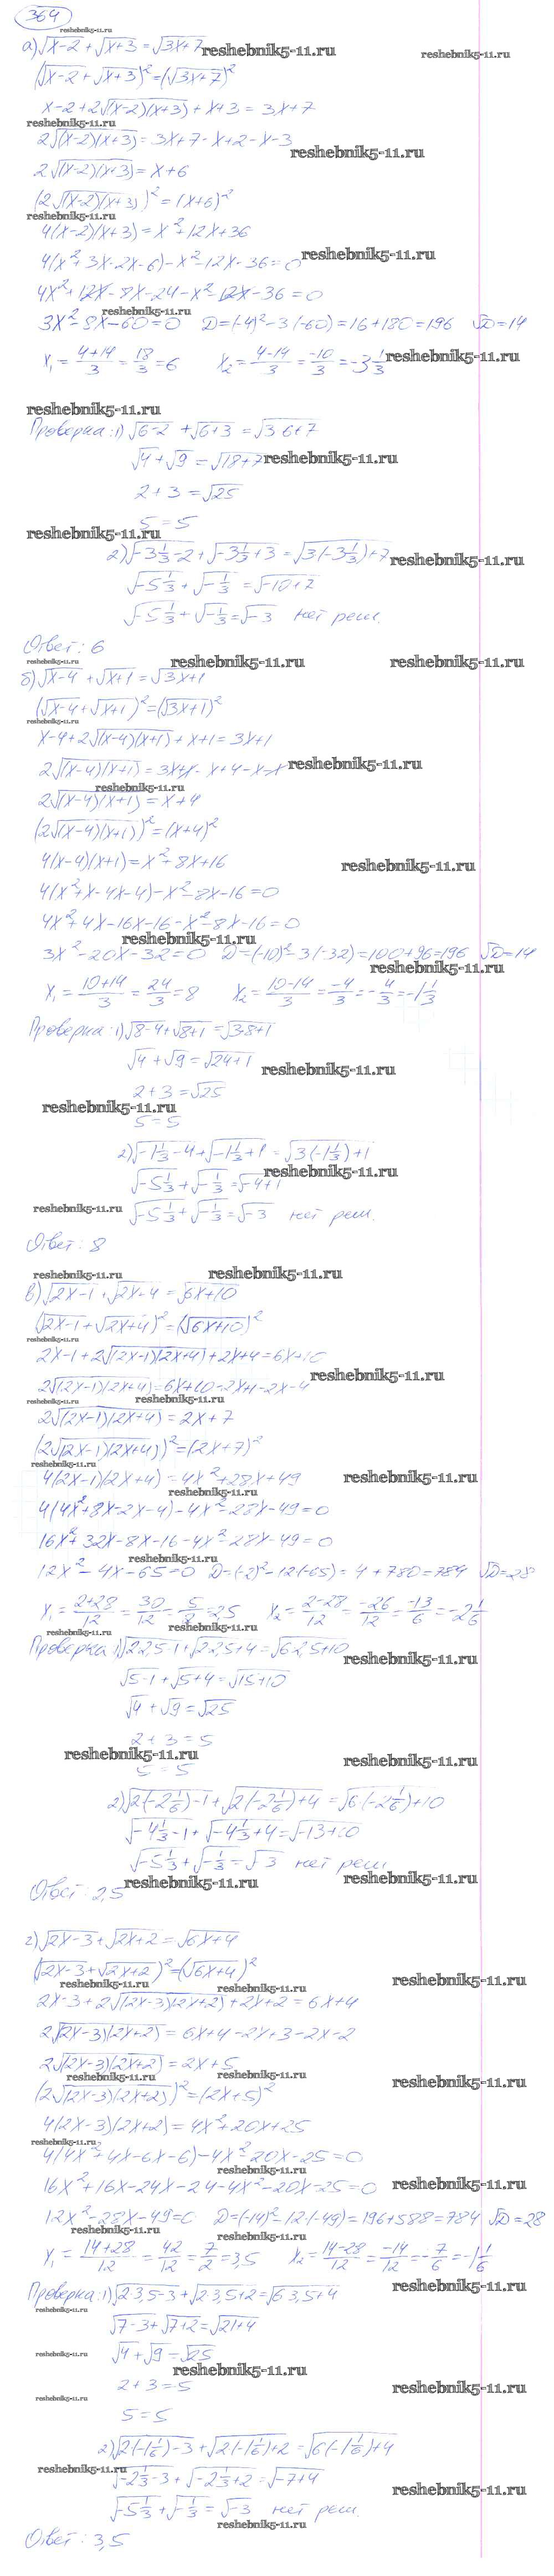 364
reshebnik5-11.ru
а) √x-2 + √x+3 = √3x+7 reshebnik5-11.ru reshebnik5-11.ru
(√x-2 + √x+3)² = (√3x+7)²
x-2+2√(x-2)(x+3) + x+3 = 3x+7
reshebnik5-11.ru
2√(x-2)(x+3) = 3x+7-x+2-x-3
reshebnik5-11.ru
2√(x-2)(x+3) = x+6
(2√(x-2)(x+3))² = (x+6)²
reshebnik5-11.ru
4(x-2)(x+3) = x²+12x+36
4(x²+3x-2x-6)-x²-12x-36=0 reshebnik5-11.ru
4x²+12x-8x-24-x²-12x-36=0
reshebnik5-11.ru
3x²-8x-60=0 D=(-4)²-3(-60)=16+180=196 √D=14
x₁ = 4+14/3 = 18/3 = 6 x₂ = 4-14/3 = -10/3 = -3 1/3 reshebnik5-11.ru
reshebnik5-11.ru
Проверка: 1) √6-2 + √6+3 = √3·6+7
√4 + √9 = √18+7 reshebnik5-11.ru
2+3 = √25
5 = 5
reshebnik5-11.ru
2) √-3 1/3 -2 + √-3 1/3 +3 = √3(-3 1/3)+7 reshebnik5-11.ru
√-5 1/3 + √-1/3 = √-10+7
√-5 1/3 + √-1/3 = √-3 нет реш.
Ответ: 6
reshebnik5-11.ru reshebnik5-11.ru reshebnik5-11.ru
б) √x-4 + √x+1 = √3x+1
(√x-4 + √x+1)² = (√3x+1)²
reshebnik5-11.ru
x-4+2√(x-4)(x+1) + x+1 = 3x+1
2√(x-4)(x+1) = 3x+1-x+4-x-1 reshebnik5-11.ru
reshebnik5-11.ru
2√(x-4)(x+1) = x+4
(2√(x-4)(x+1))² = (x+4)²
4(x-4)(x+1) = x²+8x+16 reshebnik5-11.ru
4(x²+x-4x-4)-x²-8x-16=0
4x²+4x-16x-16-x²-8x-16=0
reshebnik5-11.ru
3x²-20x-32=0 D=(-10)²-3(-32)=100+96=196 √D=14
reshebnik5-11.ru
x₁ = 10+14/3 = 24/3 = 8 x₂ = 10-14/3 = -4/3 = -4/3 = -1 1/3
Проверка: 1) √8-4 + √8+1 = √3·8+1
√4 + √9 = √24+1 reshebnik5-11.ru
2+3 = √25
reshebnik5-11.ru
5 = 5
2) √-1 1/3 -4 + √-1 1/3 +1 = √3(-1 1/3)+1
reshebnik5-11.ru
√-5 1/3 + √-1/3 = √-4+1
reshebnik5-11.ru
√-5 1/3 + √-1/3 = √-3 нет реш.
Ответ: 8
reshebnik5-11.ru reshebnik5-11.ru
в) √2x-1 + √2x-4 = √6x+10
(√2x-1 + √2x+4)² = (√6x+10)²
reshebnik5-11.ru
2x-1+2√(2x-1)(2x+4) + 2x+4 = 6x+10
reshebnik5-11.ru
2√(2x-1)(2x+4) = 6x+10-2x+1-2x-4
reshebnik5-11.ru reshebnik5-11.ru
2√(2x-1)(2x+4) = 2x+7
(2√(2x-1)(2x+4))² = (2x+7)²
reshebnik5-11.ru
4(2x-1)(2x+4) = 4x²+28x+49 reshebnik5-11.ru
reshebnik5-11.ru
4(4x²+8x-2x-4)-4x²-28x-49=0
16x²+32x-8x-16-4x²-28x-49=0
reshebnik5-11.ru
12x²-4x-65=0 D=(-2)²-12(-65)=4+780=784 √D=28
x₁ = 2+28/12 = 30/12 = 5/2 = 2,5 x₂ = 2-28/12 = -26/12 = -13/6 = -2 1/6
reshebnik5-11.ru reshebnik5-11.ru
Проверка: 1) √2·2,5-1 + √2·2,5+4 = √6·2,5+10
reshebnik5-11.ru
√5-1 + √5+4 = √15+10
√4 + √9 = √25
2+3 = 5
reshebnik5-11.ru reshebnik5-11.ru
5 = 5
2) √2(-2 1/6)-1 + √2(-2 1/6)+4 = √6·(-2 1/6)+10
√-4 1/3 -1 + √-4 1/3 +4 = √-13+10
√-5 1/3 + √-1/3 = √-3 нет реш.
reshebnik5-11.ru reshebnik5-11.ru
Ответ: 2,5
г) √2x-3 + √2x+2 = √6x+4
(√2x-3 + √2x+2)² = (√6x+4)²
reshebnik5-11.ru reshebnik5-11.ru reshebnik5-11.ru
2x-3+2√(2x-3)(2x+2) + 2x+2 = 6x+4
2√(2x-3)(2x+2) = 6x+4-2x+3-2x-2
2√(2x-3)(2x+2) = 2x+5
reshebnik5-11.ru reshebnik5-11.ru reshebnik5-11.ru
(2√(2x-3)(2x+2))² = (2x+5)²
4(2x-3)(2x+2) = 4x²+20x+25
reshebnik5-11.ru
4(4x²+4x-6x-6)-4x²-20x-25=0
reshebnik5-11.ru
16x²+16x-24x-24-4x²-20x-25=0 reshebnik5-11.ru
12x²-28x-49=0 D=(-14)²-12·(-49)=196+588=784 √D=28
reshebnik5-11.ru reshebnik5-11.ru
x₁ = 14+28/12 = 42/12 = 7/2 = 3,5 x₂ = 14-28/12 = -14/12 = -7/6 = -1 1/6
Проверка: 1) √2·3,5-3 + √2·3,5+2 = √6·3,5+4 reshebnik5-11.ru
reshebnik5-11.ru
√7-3 + √7+2 = √21+4
√4 + √9 = √25
reshebnik5-11.ru reshebnik5-11.ru
2+3 = 5 reshebnik5-11.ru
reshebnik5-11.ru
5 = 5
2) √2(-1 1/6)-3 + √2(-1 1/6)+2 = √6(-1 1/6)+4
reshebnik5-11.ru
√-2 1/3 -3 + √-2 1/3 +2 = √-7+4 reshebnik5-11.ru
√-5 1/3 + √-1/3 = √-3 нет реш.
reshebnik5-11.ru
Ответ: 3,5